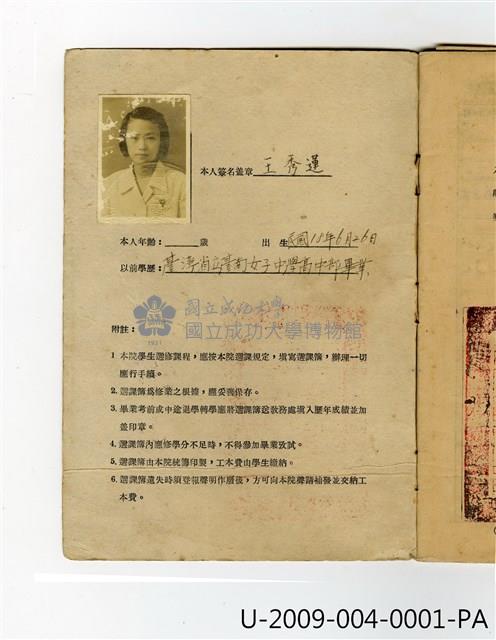 本人簽名蓋章 王秀蓮
本人年齡：　　歲　　出生 民國18年6月26日
以前學歷：臺灣省立臺南女子中學高中部畢業
國立成功大學
國立成功大學博物館
1931
附註：
1 本院學生選修課程，應按本院選課規定，填寫選課簿，辦理一切
應行手續。
2. 選課簿爲修業之根據，應妥善保存。
3. 畢業考前或中途退學轉學應將選課簿送敎務處填入歷年成績並加
蓋印章。
4. 選課簿內應修學分不足時，不得參加畢業攷試。
5. 選課簿由本院統籌印製，工本費由學生繳納。
6. 選課簿遺失時須登報聲明作廢後，方可向本院聲請補發並交納工
本費。
U-2009-004-0001-PA